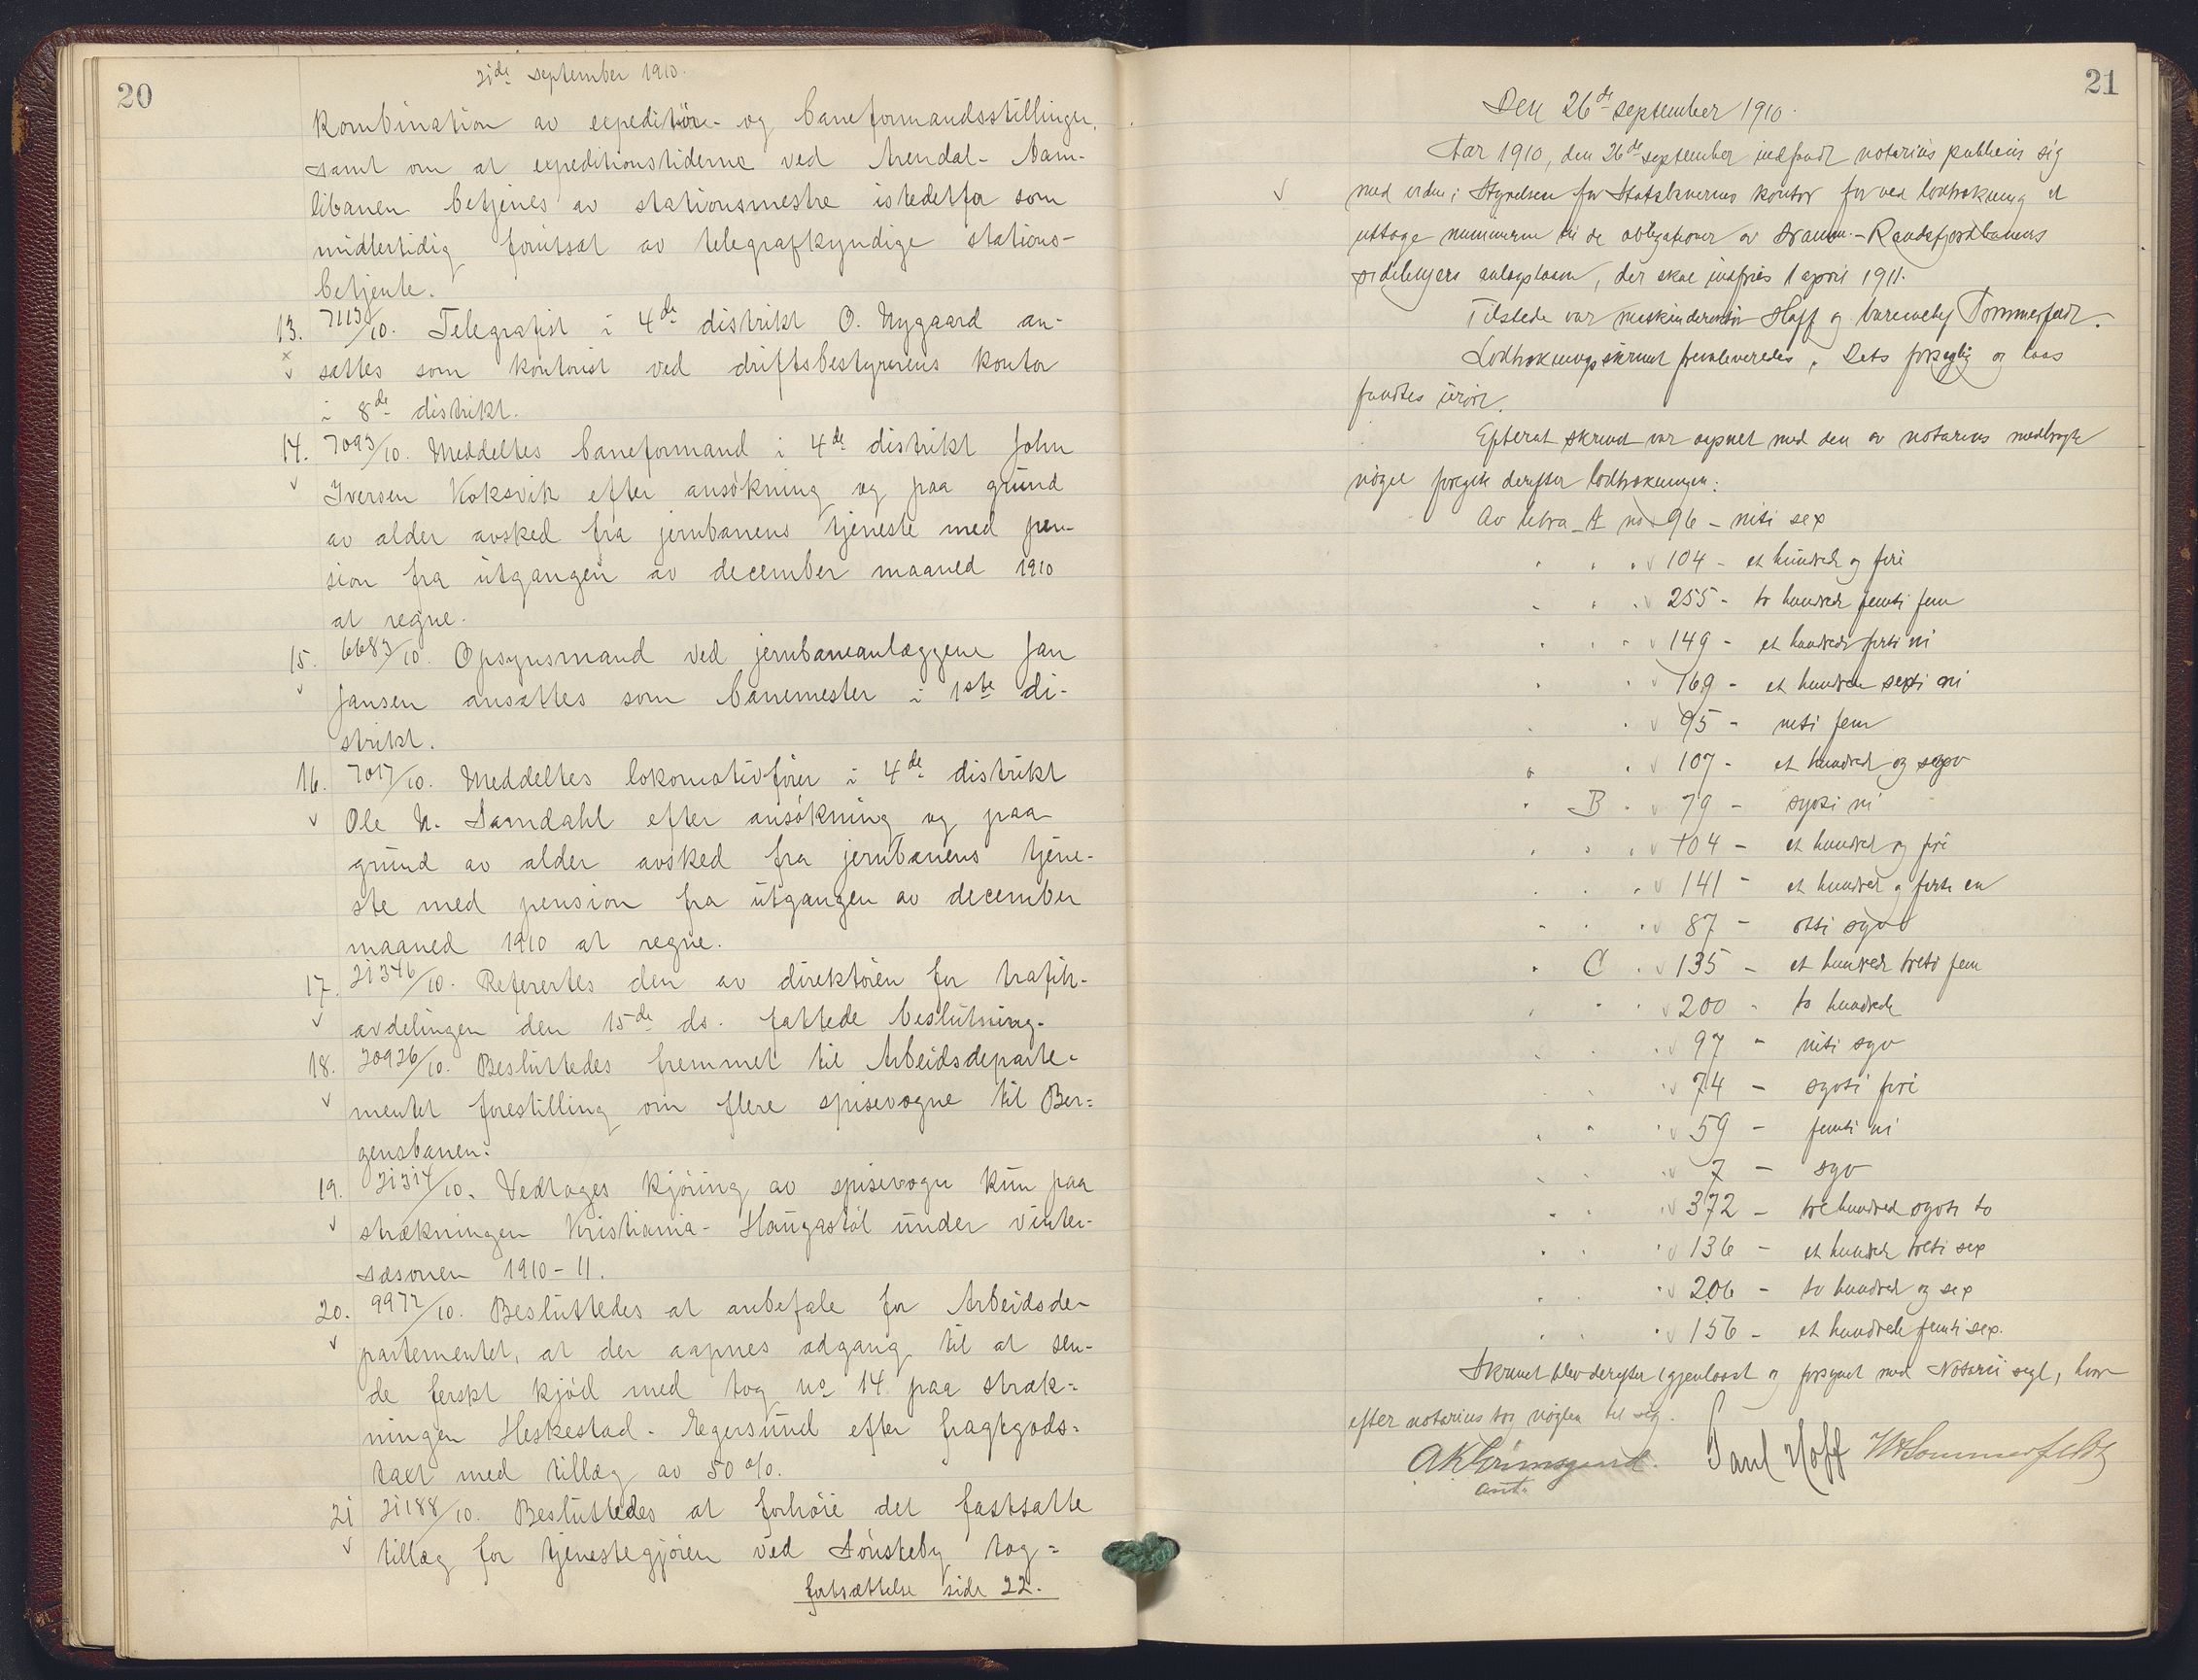 20
21de september 1910.
kombination av expeditörs- og baneformandsstillinger,
samt om at expeditionstiderne ved Arendal- Aam-
libanen betjenes av stationsmestre istedetfor som
midlertidig forutsat av telegrafkyndige stations-
betjente.
13. 7113/10. Telegrafist i 4de distrikt O. Nygaard an-
sættes som kontorist ved driftsbestyrerens kontor
i 8de distrikt.
14. 7093/10. Meddeltes baneformand i 4de distrikt John
Iversen Koksvik efter ansökning og paa grund
av alder avsked fra jernbanens tjeneste med pen-
sion fra utgangen av december maaned 1910
at regne.
15. 6683/10. Opsynsmand ved jernbaneanlæggene Jan
Jansen ansættes som banemester i 1ste di-
strikt.
16. 7017/10. Meddeltes lokomotivförer i 4de distrikt
Ole N. Samdahl efter ansökning og paa
grund av alder avsked fra jernbanens tjene-
ste med pension fra utgangen av december
maaned 1910 at regne.
17. 21346/10. Referertes den av direktören for trafik-
avdelingen den 15de ds. fattede beslutning.
18. 20926/10. Besluttedes fremmet til Arbeidsdeparte-
mentet forestilling om flere spisevogne til Ber-
gensbanen.
19. 21314/10. Vedtoges kjöring av spisevogn kun paa
strækningen Kristiania- Haugastöl under vinter-
sæsonen 1910-11.
20. 9972/10. Besluttedes at anbefale for Arbeidsde-
partementet, at der aapnes adgang til at sen-
de ferskt kjöd med tog no 14 paa stræk-
ningen Heskestad- Egersund efter fragtgods-
taxt med tillæg av 50%.
21 21188/10. Besluttedes at forhöie det fastsatte
tillæg for tjenestegjören ved Sönsteby tog-
fortsættelse side 22.
21
Den 26de september 1910.
Aar 1910, den 26de september indfandt notarius publicus sig
med vidne i Styrelsen for Statsbanernes kontor for ved lodtrækning at
uttage nummerne til de obligationer av Dramm.-Randsfjordbanens
sidelinjers anlægslaan, der skal indfries 1 april 1911.
Tilstede var maskindirektör Hoff og bureauchef Sommerfeldt.
Lodtrækningsskrinet fremleveredes. Dets forsegling og laas
fandtes urört.
Efterat skrinet var aapnet med den av notarius medbragte
nögel foregik derefter lodtrækningen:
Av litra A no 96 - nitti sex
104 - et hundrede og fire
255 - to hundrede femti fem
149 - et hundrede førti ni
169 - et hundrede sexti ni
95 - nitti fem
107 - et hundrede og syv
B 79 - sytti ni
104 - et hundrede og fire
141 - et hundrede og førti en
87 - otti syv
C 135 - et hundrede tretti fem
200 - to hundrede
97 - nitti syv
74 - sytti fire
59 - femti ni
7 - syv
372 - tre hundrede sytti to
136 - et hundrede tretti sex
206 - to hundrede og sex
156 - et hundrede femti sex.
Skrinet blev derefter igjenlaast og forsynet med Notarii segl, hvor-
efter notarius tog nöglen til sig.
Paul Hoff Sommerfeldt